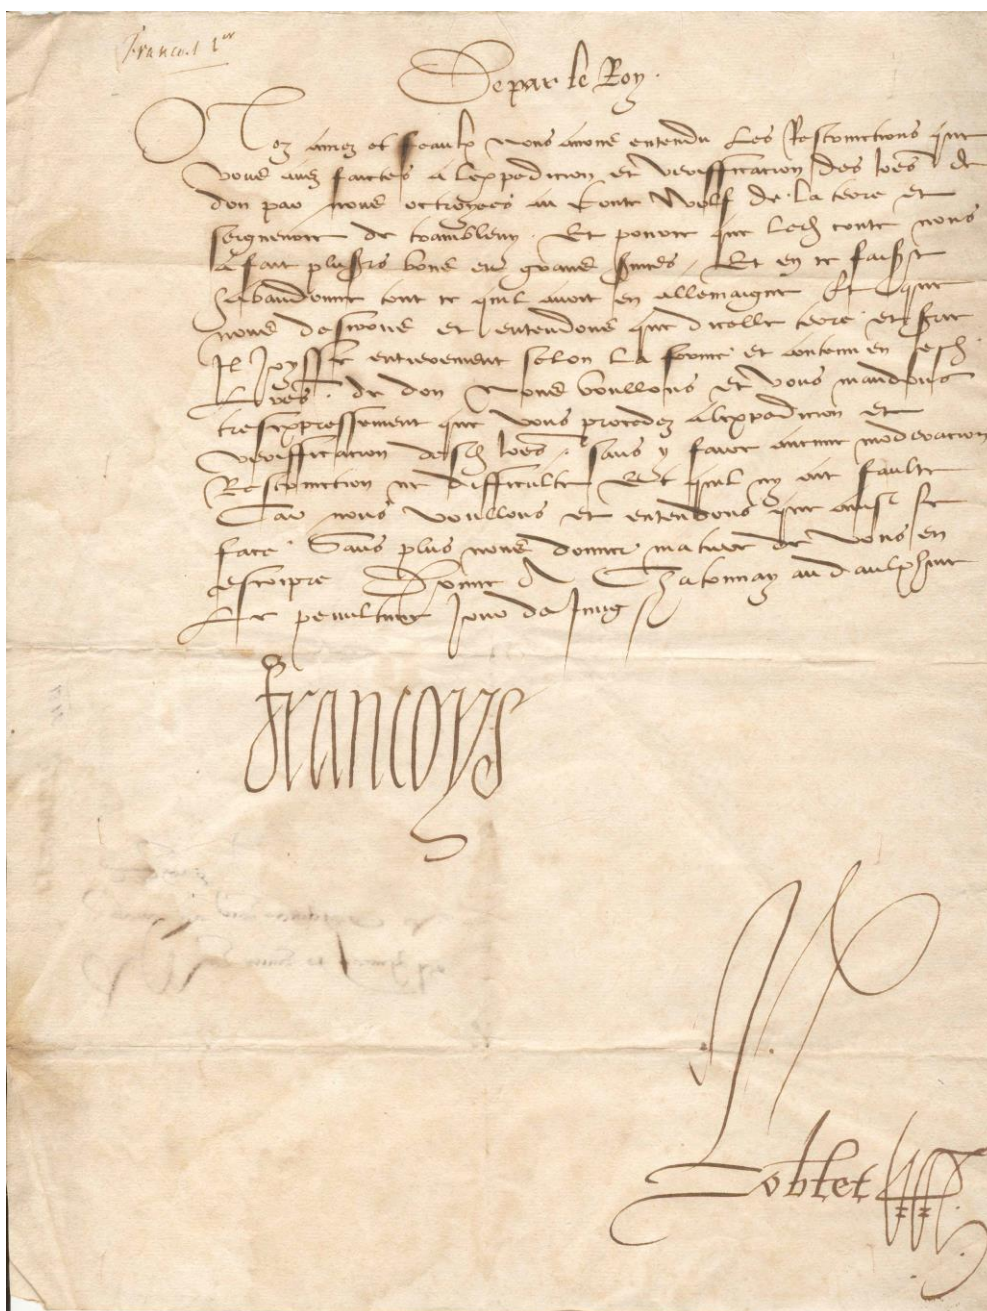 Francois 1er
De par le Roy.
Noz amez et feaulx nous avons entendu les Restrinctions que
vous avez faictes a lexpedicion et veriffication des lres de
don par nous octroyees au Conte Wolf de la terre et
seigneurie de
Et pource que led conte nous
a fait plusrs bons et grans svices, Et en ce faisant
habandonne tout ce quil avoit en allemaigne Et que
nous desirons et entendons que dicelle terre et srie
Il Joysse entierement selon la forme et contenu en sesd
lres de don Nous voullons et vous mandons
tresexpressement que vous procedez a lexpedicion et
veriffication desd lres, sans y faire aucune moderacion
Restrinction ne difficulte Et quil ny ait faulte
Car nous voullons et entendons que ainsi se
face Sans plus nous donner matiere de vous en
escripre Donne A Chatonnay au daulphine
Le penultime Jour de Juing
Francoys
Robertet